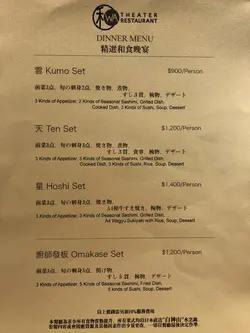 和 WA THEATER
RESTAURANT
DINNER MENU
精選和食晚宴
雲 Kumo Set $900/Person
前菜3点、旬の刺身2点、焼き物、煮物、
すし3貫、椀物、デザート
3 Kinds of Appetizer, 2 Kinds of Seasonal Sashimi, Grilled Dish,
Cooked Dish, 3 Kinds of Sushi, Soup, Dessert
天 Ten Set $1,200/Person
前菜3点、旬の刺身3点、焼き物、煮物、
すし5貫、食買、椀物、デザート
3 Kinds of Appetizer, 3 Kinds of Seasonal Sashimi, Grilled Dish,
Cooked Dish, 5 Kinds of Sushi, Rice, Soup, Dessert
星 Hoshi Set $1,400/Person
前菜3点、旬の刺身5点、焼き物、
A4和牛すき焼き、椀物、デザート
3 Kinds of Appetizer, 5 Kinds of Seasonal Sashimi, Grilled Dish,
A4 Wagyu Sukiyaki with Rice, Soup, Dessert
廚師發板 Omakase Set $1,200/Person
前菜3点、旬の刺身5点、揚げ物、
すし5貫、椀物、デザート
3 Kinds of Appetizer, 5 Kinds of Seasonal Sashimi, Fried Dish,
5 Kinds of Sushi, Soup, Dessert
以上都需設另加10%服務費用